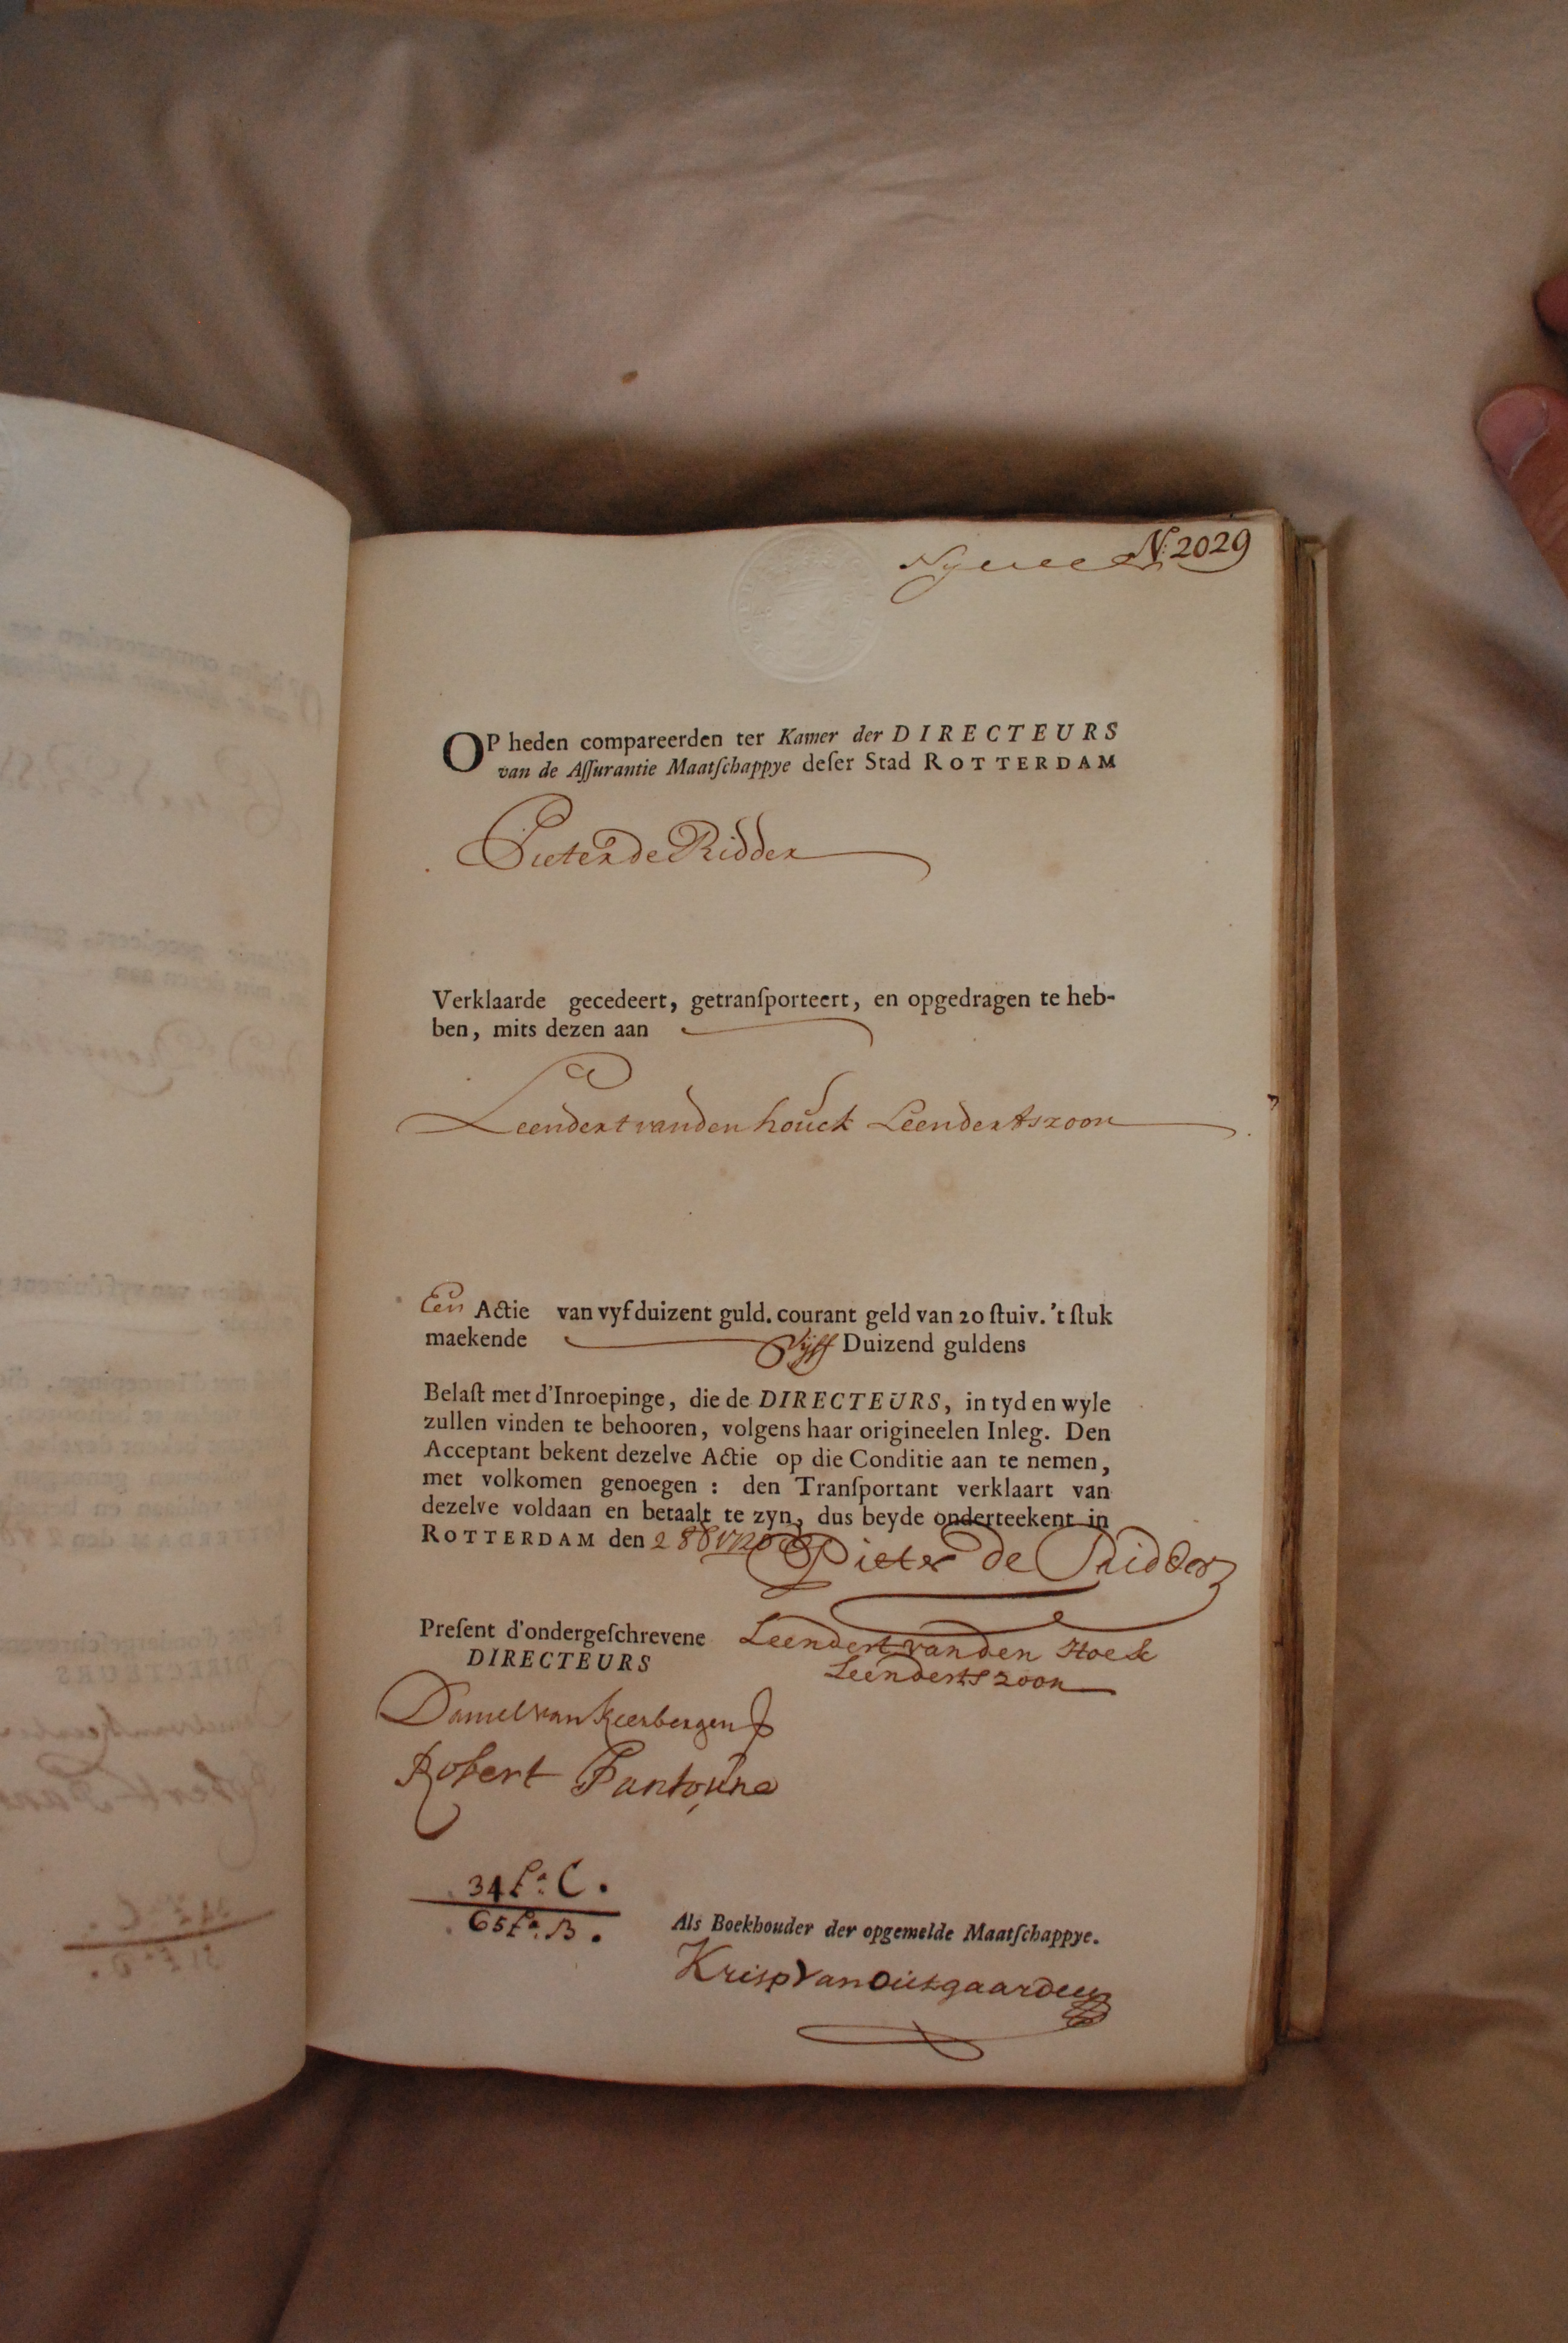 N: 2029
OP heden compareerden ter Kamer der DIRECTEURS
van de Aſſurantie Maatſchappye deſer Stad ROTTERDAM
Pieter de Ridder
Verklaarde gecedeert, getranſporteert, en opgedragen te heb-
ben, mits dezen aan
Leendert vanden houck Leendertszoon
Een Actie van vyfduizent guld. courant geld van 20 ſtuiv. 't ſtuk
maekende Vijff Duizend guldens
Belaſt met d'Inroepinge, die de DIRECTEURS, in tyd en wyle
zullen vinden te behooren, volgens haar origineelen Inleg. Den
Acceptant bekent dezelve Actie op die Conditie aan te nemen,
met volkomen genoegen : den Tranſportant verklaart van
dezelve voldaan en betaalt te zyn, dus beyde onderteekent in
ROTTERDAM den
Pieter de Ridder
Preſent d'ondergeſchrevene
DIRECTEURS
Leendert vanden Hoek
Leendertszoon
Daniel van Keerbergen
Robert
34 f.o C.
65 f.o B.
Als Boekhouder der opgemelde Maatſchappye.